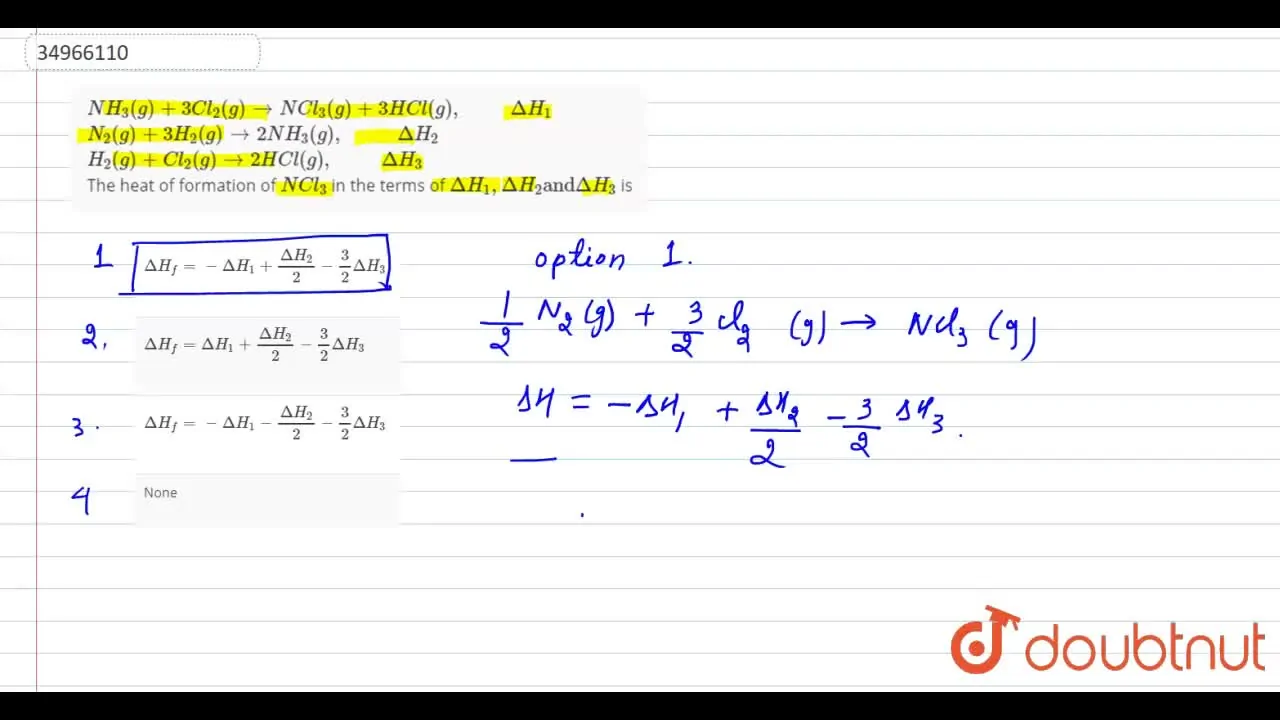 34966110
NH₃(g) + 3Cl₂(g) → NCl₃(g) + 3HCl(g), ΔH₁
N₂(g) + 3H₂(g) → 2NH₃(g), ΔH₂
H₂(g) + Cl₂(g) → 2HCl(g), ΔH₃
The heat of formation of NCl₃ in the terms of ΔH₁, ΔH₂andΔH₃ is
1 ΔH_f = −ΔH₁ + ΔH₂/2 − 3/2 ΔH₃
2. ΔH_f = ΔH₁ + ΔH₂/2 − 3/2 ΔH₃
3. ΔH_f = −ΔH₁ − ΔH₂/2 − 3/2 ΔH₃
4 None
option 1.
1/2 N₂ (g) + 3/2 Cl₂ (g) → NCl₃ (g)
ΔH = −ΔH₁ + ΔH₂/2 − 3/2 ΔH₃.
doubtnut